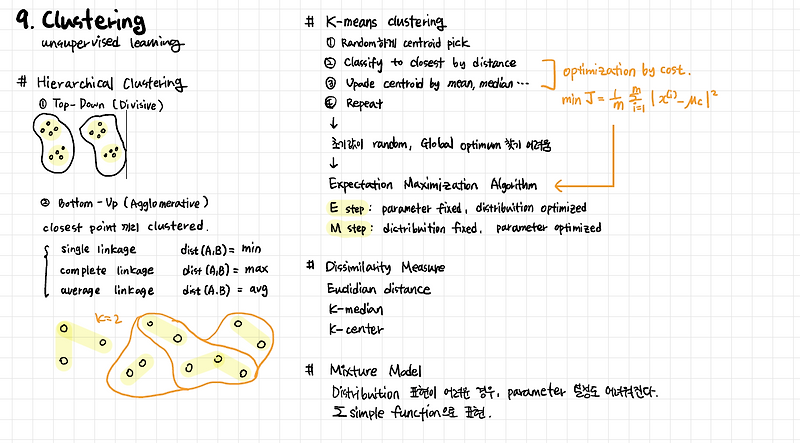 9. Clustering
unsupervised learning
# Hierarchical Clustering
① Top-Down (Divisive)
② Bottom-Up (Agglomerative)
closest point 끼리 clustered.
single linkage dist(A,B) = min
complete linkage dist(A,B) = max
average linkage dist(A.B) = avg
K=2
# K-means clustering
① Random하게 centroid pick
② Classify to closest by distance
③ Upade centroid by mean, median ...
④ Repeat
optimization by cost.
min J = 1/m Σ_{i=1}^{m} |x^{(i)} - μ_c|^2
↓
초기값이 random, Global optimum 찾기 어려움
↓
Expectation Maximization Algorithm
E step : parameter fixed, distribuition optimized
M step : dictribuition fixed, parameter optimized
# Dissimilarity Measure
Euclidian distance
K-median
K-center
# Mixture Model
Distribuition 표현이 어려운 경우, parameter 결정도 어려워진다.
Σ simple function으로 표현.